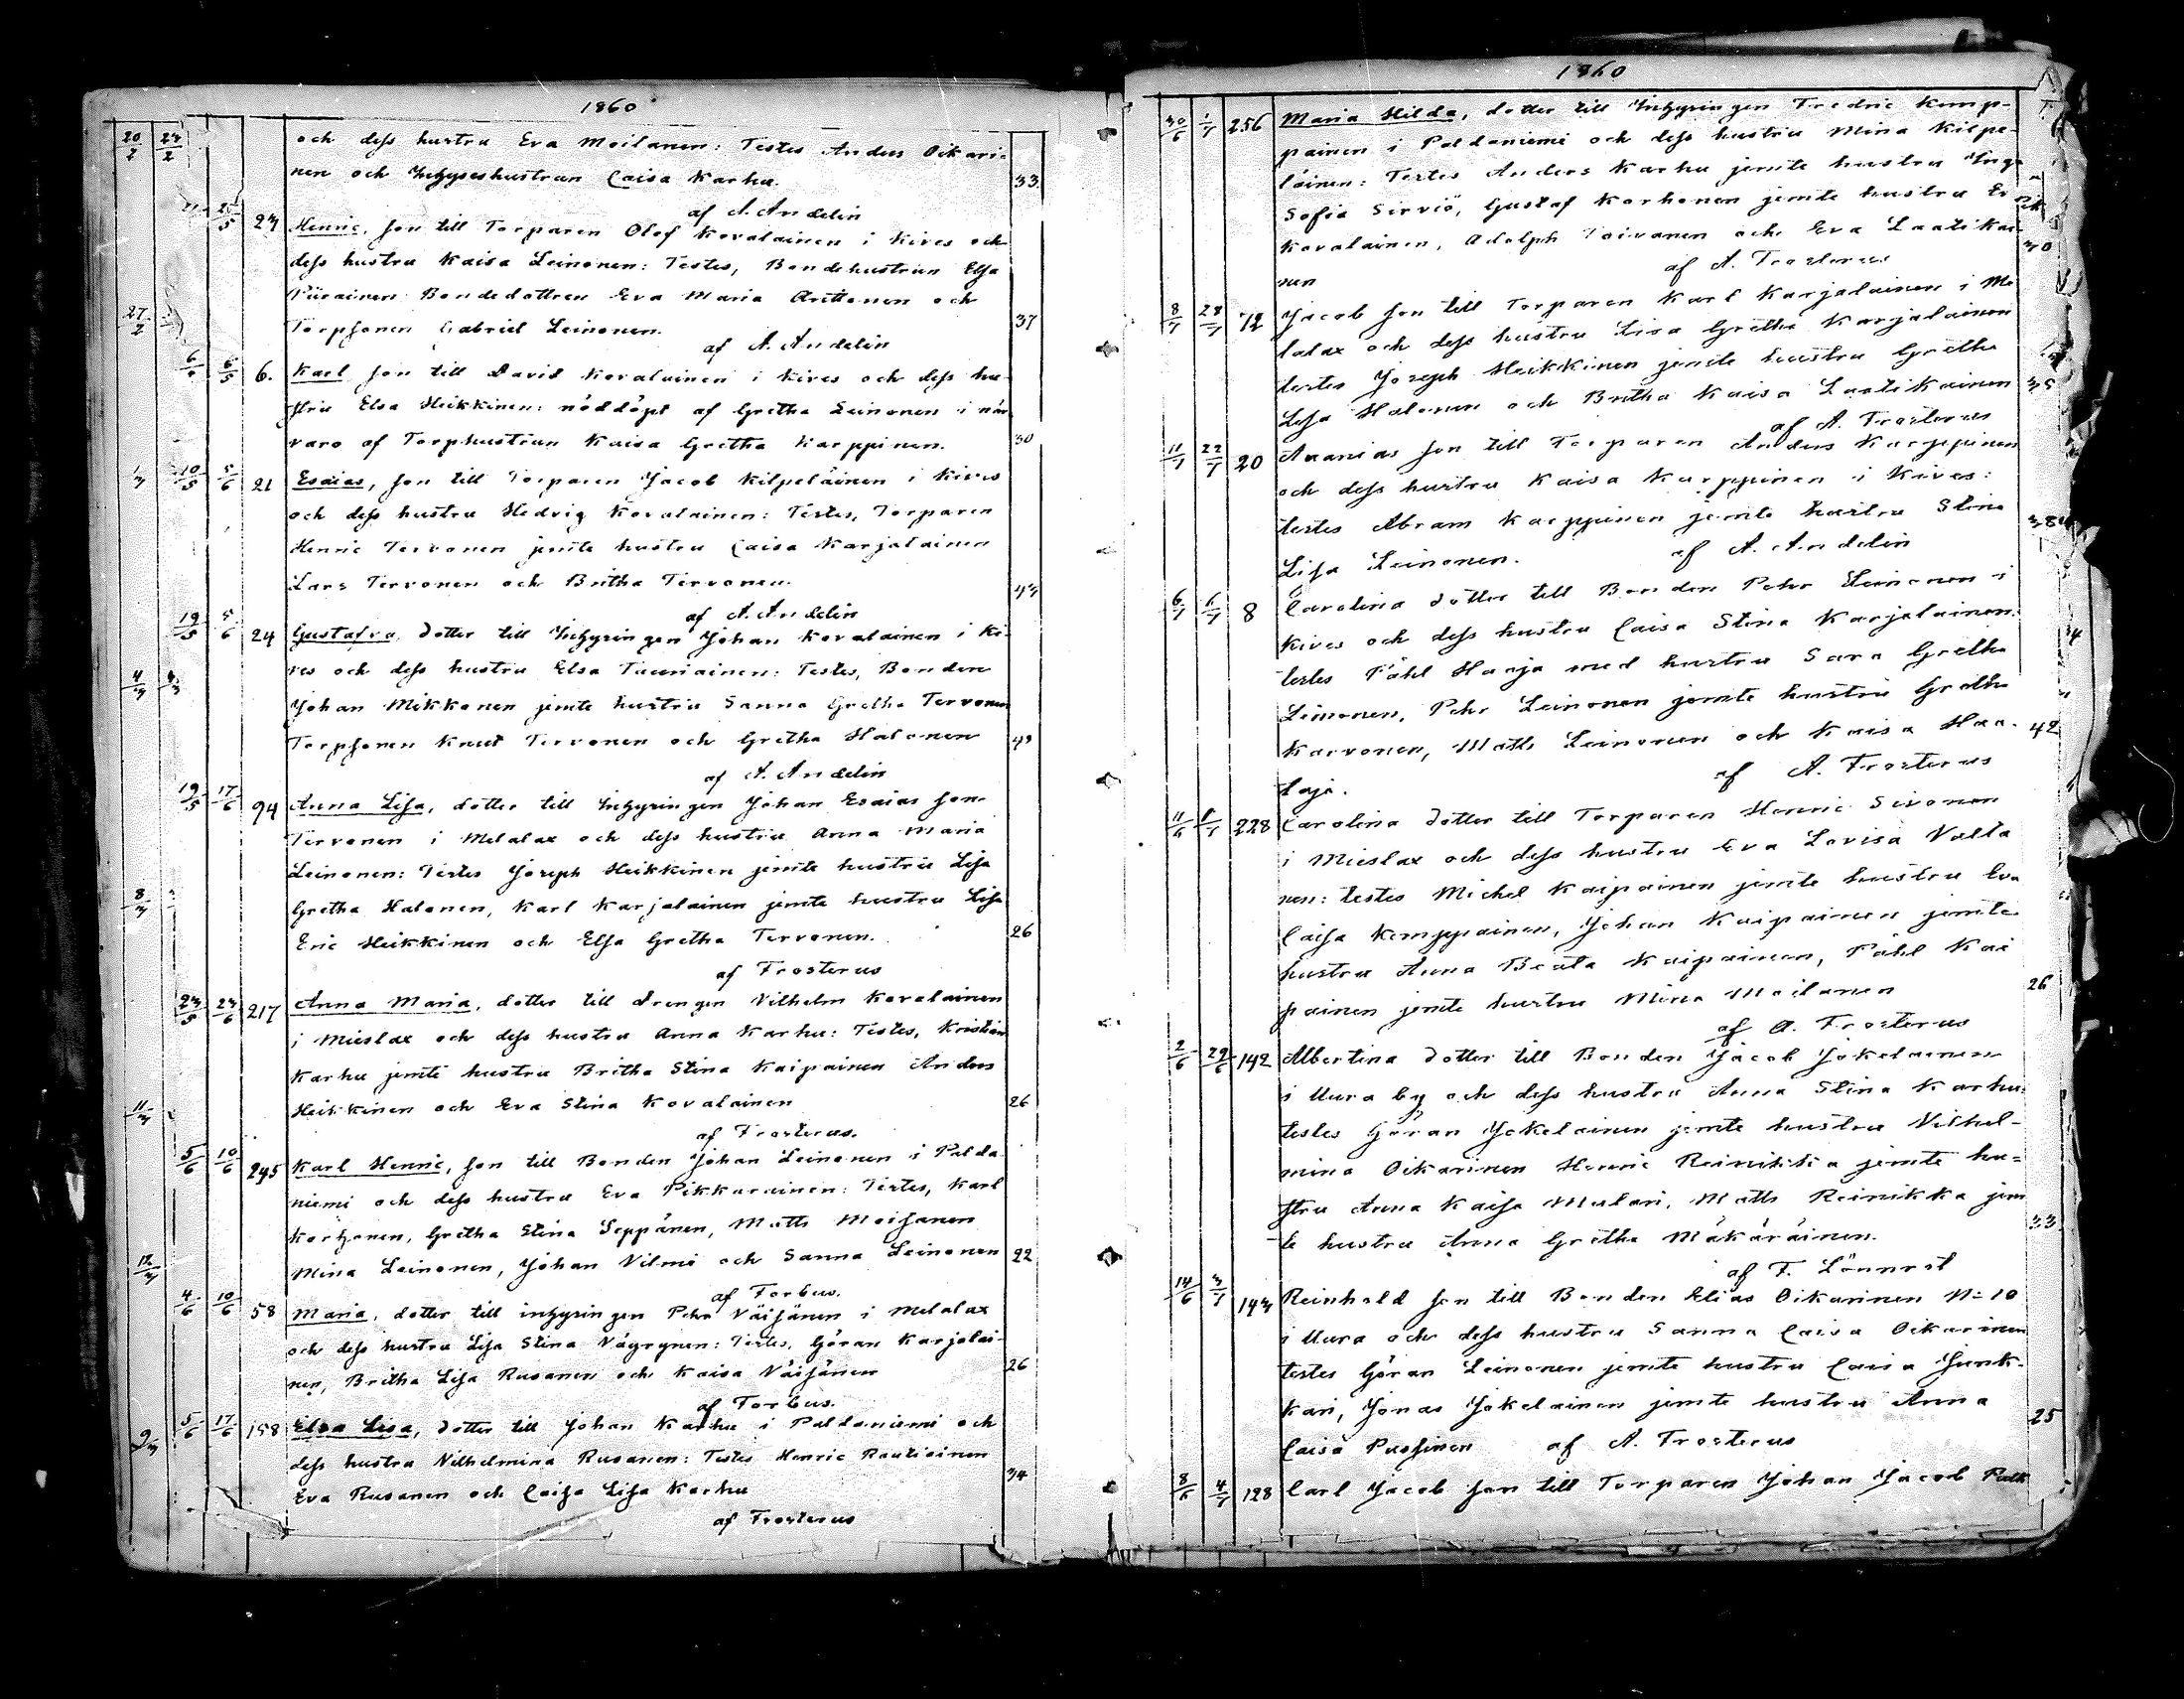 1860
20/2 23/2 och dess hustru Eva Moilanen: Testes Anders Oikari-
nen och Inhyseshustrun Caisa Karhu. 33
af A. Andelin
23 Henric, son till Torparen Olof Kovalainen i Kives och
dess hustru Kaisa Leinonen: Testes, Bondehustrun Elsa
Piirainen Bondedottren Eva Maria Anttonen och
27/2 Torpsonen Gabriel Leinonen. 37
af A. Andelin
6/5 6. Karl son till David Kovalainen i Kives och dess hu-
stru Elsa Heikkinen: nöddöpt af Gretha Leinonen i när
varo af Torphustrun Kaisa Gretha Karppinen. 30
10/5 5/6 21 Esaias, son till Torparen Jacob Kilpeläinen i Kives
och dess hustru Hedvig Kovalainen: Testes, Torparen
Henric Tervonen jemte hustru Caisa Karjalainen
Lars Tervonen och Britha Tervonen. 43
af A. Andelin
19/5 5/6 24 Gustafva, dotter till Inhysingen Johan Kovalainen i Ki-
ves och dess hustru Elsa Tauriainen: Testes, Bonden
4/3 Johan Mikkonen jemte hustru Sanna Gretha Tervonen
Torpsonen Knut Tervonen och Gretha Halonen 43
af A. Andelin
19/5 17/6 94 Anna Lisa, dotter till Inhysingen Johan Esaias son
Tervonen i Melalax och dess hustru Anna Maria
Leinonen: Testes Joseph Heikkinen jemte hustru Lisa
8/3 Gretha Halonen, Karl Karjalainen jemte hustru Lisa
Eric Heikkinen och Elsa Gretha Tervonen. 26
af Frosterus
23/5 23/6 217 Anna Maria, dotter till drengen Vilhelm Kovalainen
i Mieslax och dess hustru Anna Karhu: Testes, Kristian
Karhu jemte hustru Britha Stina Kaipainen Anders
11/3 Heikkinen och Eva Stina Kovalainen 26
af Frosterus.
5/6 10/6 245 Karl Henric, son till Bonden Johan Leinonen i Palda
niemi och dess hustru Eva Pikkarainen: Testes, Karl
Korhonen, Gretha Stina Seppänen, Matts Moisanen
Mina Leinonen, Johan Vilmi och Sanna Leinonen 22
af Forbus.
4/6 10/6 58 Maria, dotter till inhysingen Pehr Väisänen i Melalax
och dess hustru Lisa Stina Vägrynen: Testes, Göran Karjalai-
nen, Britha Lisa Rusanen och Kaisa Väisänen 26
af Forbus.
5/6 17/6 158 Elsa Lisa, dotter till Johan Karhu i Paldaniemi och
dess hustru Vilhelmina Rusanen: Testes Henric Rautiainen
Eva Rusanen och Caisa Lisa Karhu 34
af Frosterus
1860
30/6 1/7 256 Maria Hilda, dotter till Inhysingen Fredric Kemp-
painen i Paldaniemi och dess hustru Mina Kilpe-
läinen: Testes Anders Karhu jemte hustru Inga
Sofia Sirviö, Gustaf Korhonen jemte hustru Er
Kovalainen, Adolph Toivanen och Eva Laatikai- 30
nen af A. Frosterus
8/7 28/7 72 Jacob son till Torparen Karl Karjalainen i Me
lalax och dess hustru Lisa Gretha Karjalainen
testes Joseph Heikkinen jemte hustru Gretha
Lisa Halonen och Britha Kaisa Laatikainen 35
af A. Frosterus
11/7 22/7 20 Ananias son till Torparen Anders Karppinen
och dess hustru Kaisa Karppinen i Kives:
testes Abram Karppinen jemte hustru Stina
Lisa Leinonen. af A. Andelin 38
8 Carolina dotter till Bonden Pehr Leinonen i
Kives och dess hustru Caisa Stina Karjalainen:
testes Påhl Haaja med hustru Sara Gretha
Leinonen, Pehr Leinonen jemte hustru Gretha
Karvonen, Matts Leinonen och Kaisa Haa- 42
laja. af A. Frosterus
228 Carolina dotter till Torparen Henric Sivonen
i Mieslax och dess hustru Eva Lovisa Valta
nen: testes Michel Kaipainen jemte hustru Eva
Caisa Kemppainen, Johan Kaipainen jemte
hustru Anna Beata Kaipainen, Påhl Kai
painen jemte hustru Mina Moilanen 26
af A. Frosterus
2/6 29/6 142 Albertina dotter till Bonden Jacob Jokelainen
i Uura by och dess hustru Anna Stina Karhu:
testes Göran Jokelainen jemte hustru Vilhel-
mina Oikarinen Henric Reinikka jemte hu=
stru Anna Kaisa Mulari, Matts Reinikka jem
te hustru Anna Gretha Mäkäräinen. 33
af F. Lönnrot
14/6 3/7 143 Reinhold son till Bonden Elias Oikarinen N=10
i Uura och dess hustru Sanna Caisa Oikarinen
testes Göran Leinonen jemte hustru Caisa Junk-
kari, Jonas Jokelainen jemte hustru Anna 25
Caisa Pussinen af A. Frosterus
8/6 4/7 128 Carl Jacob son till Torparen Johan Jacob